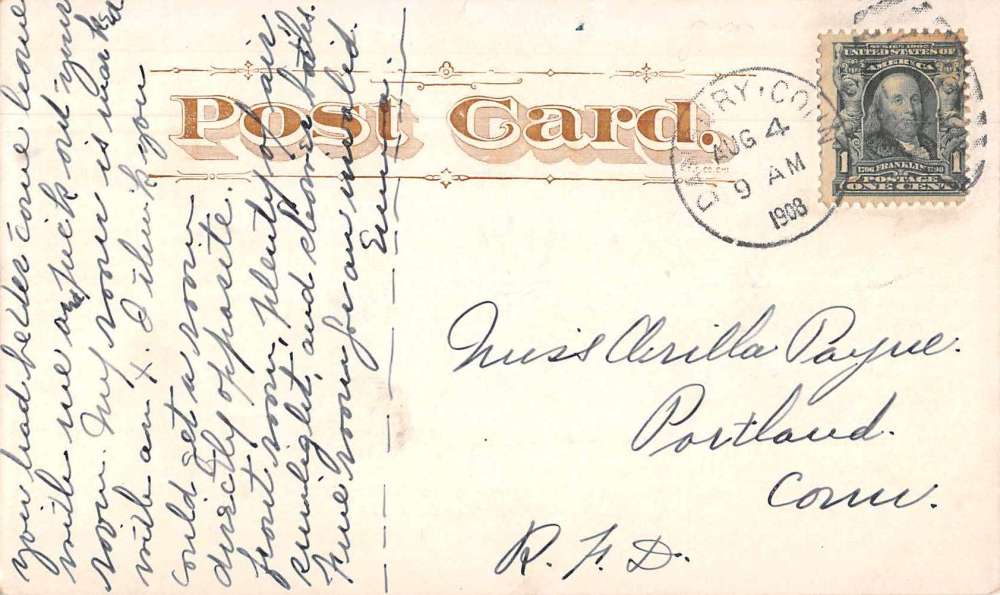 you had better come home
with me and pick out your
room. My room is marked
with an X. I think you
could get a room
directly opposite.
front room, plenty of air,
sunlight, and closet
fine room for an invalid.
Post Card.
DANBURY, CONN.
AUG 4
9 AM
1908
SERIES 1902
UNITED STATES OF
AMERICA
1706 FRANKLIN 1790
1 POSTAGE 1
ONE CENT
Miss Orilla Payne.
Portland.
Conn.
R. F. D.